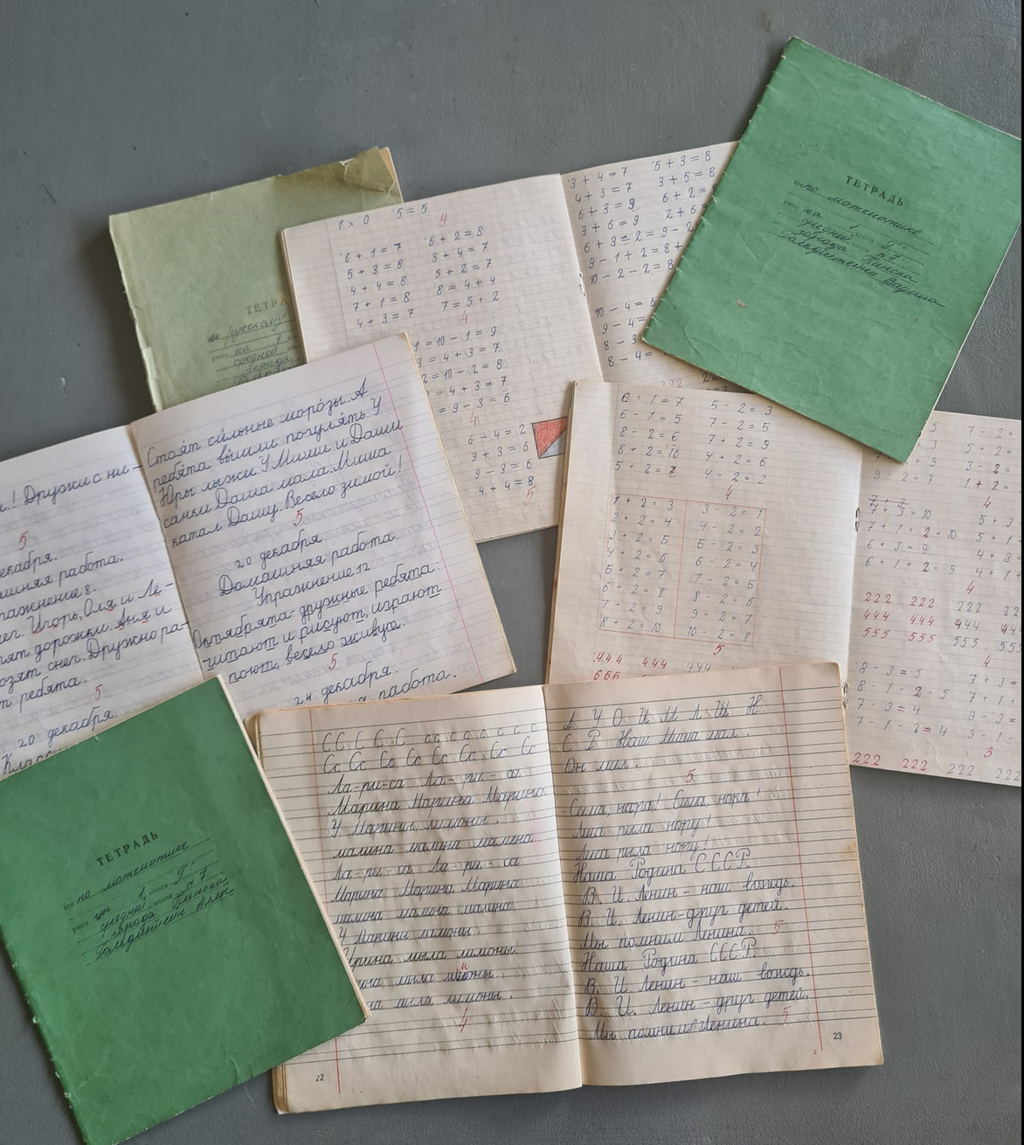 ТЕТРАДЬ
по математике
ТЕТРАДЬ
по математике
1
города Пинска
1 > 0 5 = 5
4
6 + 1 = 7 6 + 2 = 8
5 + 3 = 8 3 + 4 = 7
4 + 4 = 8 5 + 2 = 7
7 + 1 = 8 8 = 4 + 4
4 + 3 = 7 7 = 5 + 2
4
1 = 10 - 1 = 9
= 4 + 3 = 7
2 = 10 - 2 = 8
= 4 + 3 = 7
= 9 - 3 = 6
4
6 - 4 = 2
3 + 3 = 6
9 - 3 = 6
4 + 4 = 8
5
3 + 4 = 7 5 + 3 = 8
4 + 3 = 7 3 + 5 = 8
6 + 3 = 9 6 + 2 =
3 + 6 = 9 2 + 6
9 - 1 + 2 = 8 +
10 - 2 - 2 = 8
10 - 4 = 6
9 - 4 =
8 - 3
8 - 4
! Дружки с ни -
5
декабря.
Домашняя работа.
Упражнение 8.
снег. Игорь, Оля и Лё -
дорожки. Аня и
возят снег. Дружно ра-
ребята.
5
20 декабря.
Стоят сильные морозы. А
ребята вышли погулять. У
Юры лыжи. У Миши и Даши
санки. Даша мала. Миша
катал Дашу. Весело зимой!
5
20 декабря.
Домашняя работа.
Упражнение 12
Октябрята - дружные ребята:
читают и рисуют, играют
поют, весело живут.
5
24 декабря.
работа.
6 + 1 = 7 5 - 2 = 3
6 - 1 = 5 7 - 2 = 5
8 - 2 = 6 7 + 2 = 9
8 + 2 = 10 4 + 2 = 6
5 + 2 = 7 4 - 2 = 2
4
1 + 2 = 3 3 - 2 = 1
2 + 2 = 4 4 - 2 = 2
3 + 2 = 5 5 - 2 = 3
4 + 2 = 6 6 - 2 = 4
5 + 2 = 7 7 - 2 = 5
6 + 2 = 8 8 - 2 = 6
7 + 2 = 9 9 - 2 = 7
8 + 2 = 10 10 - 2 = 8
5
444 444 444
666
7 - 2 =
3 - 2 =
9 - 2 = 7 1 + 2 =
4
7 + 3 = 10 5 + 3
7 + 1 + 2 = 10 5 + 1
6 + 3 = 9 4 + 3
6 + 1 + 2 = 9 4 + 1
4
222 222 222 222
444 444 444
555 555 555 55
4
8 - 3 = 5 7 + 3 =
8 - 1 - 2 = 5 7 + 1
7 - 3 = 4 9 - 3 =
7 - 1 - 2 = 4 9 - 1 -
3
222 222 222 222
Сс Сс Сс Сс Сс Сс Сс
Ла-ри-са Ла-ри-са
Марина Марина Марина
У Марины лимоны.
малина малина малина
Ла-ри-са Ла-ри-са
Марина Марина Марина
малина малина малина
У Марины лимоны
Ирина мыла лимоны.
мыла лимоны.
мыла лимоны.
4
22
С Р Наш Миша мал.
Он мал.
5
Сима, нора! Сима, нора!
Лиса рыла нору!
Лиса рыла нору!
Наша Родина СССР.
В. И. Ленин - наш вождь.
В. И. Ленин - друг детей.
Мы помним Ленина. 5
Наша Родина СССР.
В. И. Ленин - наш вождь.
В. И. Ленин - друг детей.
Мы помним Ленина. 5
23
ТЕТРАДЬ
по математике
1
средней
города Пинска